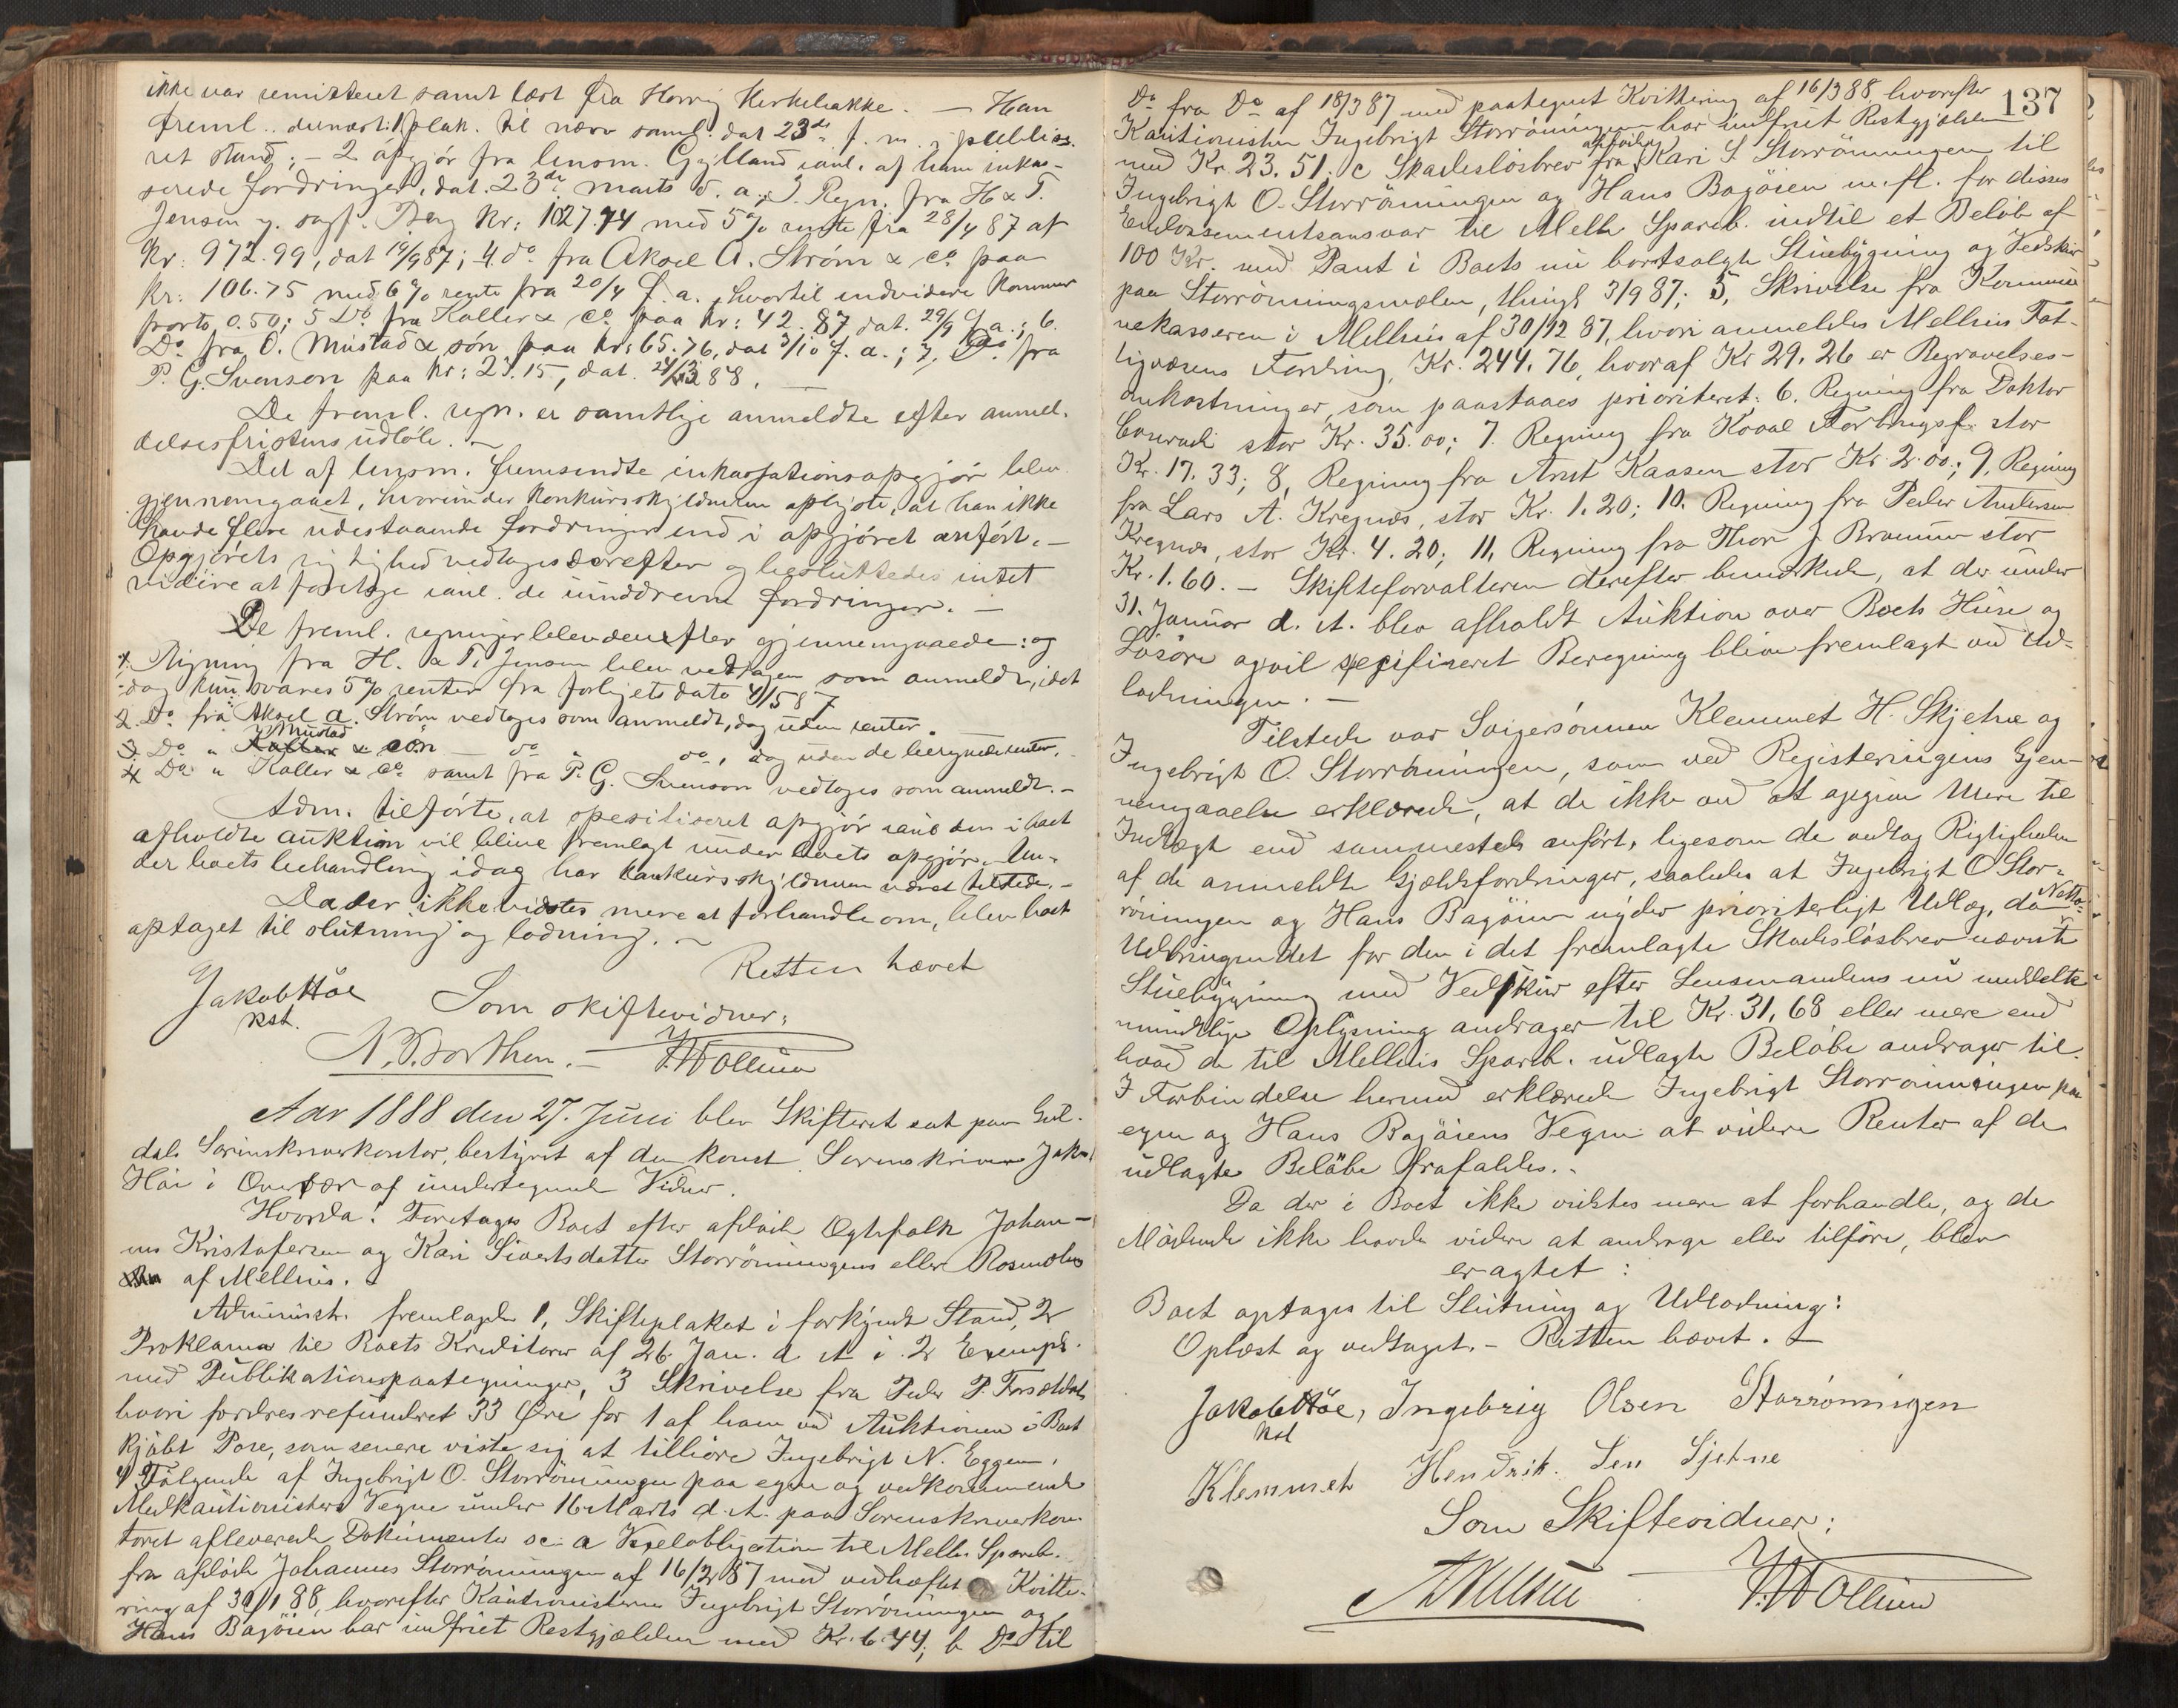 ikke var remitteret samt læst fra Horrig Kirkebakke. — Han
freml. dernæst: 1 plak. til nærv saml. dat 23de f. m. i publice-
ret stand; – 2 opgjör fra lensm. Gylland anl. af ham inkas-
serede fordringer, dat. 23de marts d. a., 3. Regn. fra H & T.
Jensen y. sagf. Berg Kr: 1027.74 med 5% rente fra 28/4 87 af
Kr. 972.99, dat 19/9 87; 4. do fra Aksel A. Ström & Co. paa
Kr: 106.75 med 6% rente fra 20/4 f. a. hvortil endvidere kommer
porto 0.50; 5 Do fra Koller & Co paa Kr: 42.87 dat. 29/9 f. a.; 6.
Do fra O. Mustad & sön paa Kr: 65.76, dat 3/10 f. a.; 7, Do fra
P. G. Svenson paa Kr: 27.15, dat. 24/3 88. —
De freml. regn. er samtlige anmeldte efter anmel-
delsesfristens udlöb. —
Det af lensm. fremsendte inkassationsopgjör blev
gjennemgaaet, hvorunder konkursskyldneren oplyste, at han ikke
havde flere udestaaende fordringer end i opgjöret anfört. —
Opgjörets rigtighed vedtoges derefter og besluttedes intet
videre at foretage anl. de uinddrevne fordringer. —
De freml. regninger blev derefter gjennemgaaede: og
1. Regning fra H. & T. Jensen blev vedtagen som anmeldt, idet
dog kun svares 5% renter fra forligets dato 4/5 87
2. Do fra Aksel A. Ström vedtoges som anmeldt, dog uden renter.
3. Do " O. Mustad & sön — do — do, dog uden de beregnede renter.
4 Do " Koller & Co samt fra P. G. Svenson vedtoges som anmeldt. –
Adm. tilförte, at spesifiseret opgjör anl. den i boet
afholdte auktion vil blive fremlagt under boets opgjör. Un-
der boets behandling idag har konkursskyldneren været tilstede. –
Da der ikke vidstes mere at forhandle om, blev boet
optaget til slutning og lodning. —
Retten hævet
Jakob Höe
kst.
Som skiftevidner:
N. P. Borthen. — P. Wollum
Aar 1888 den 27. Juni blev Skifteret sat paa Gul-
dals Sorenskriverkontor, bestyret af den konst. Sorenskriver Jakob
Höe i Overvær af undertegnede Vidner.
Hvorda: Foretoges Boet efter afdöde Ægtefolk Johan-
nes Kristofersen og Kari Sivertsdatter Storröningen eller Rosmolen
af Melhus.
Administr. fremlagde 1, Skifteplakat i forkyndt Stand, 2
Proklama til Boets Kreditorer af 26 Jan. d. A i 2 Exempl.
med Publikationspaategninger, 3 Skrivelse fra Peder P. Forsetdal
hvori fordres refunderet 33 Öre for 1 af ham ved Auktionen i Boet
kjöbt Pose, som senere viste sig at tilhöre Ingebrigt N. Eggen,
4 Fölgende af Ingebrigt O. Storröningen paa egne og vedkommende
Medkautionisters Vegne under 16 Marts d. A. paa Sorenskriverkon-
toret afleverede Dokumenter sc: a Vexelobligation til Melh. Spareb.
fra afdöde Johannes Storröningen af 16/2 87 med vedhæftet Kvitte-
ring af 30/1 88, hvorefter Kautionisterne Ingebrigt Storröningen og
Hans Bagöien har indfriet Restgjælden med Kr. 6.44; b Do til
137
Do fra Do af 18/3 87 med paategnet Kvittering af 16/3 88 hvorefter
Kautionisten Ingebrigt Storröningen har indfriet Restgjælden
med Kr. 23.51; c Skadeslösbrev fra afdöde Kari S. Storröningen til
Ingebrigt O. Storröningen og Hans Bagöien m. fl. for disses
Endossementsansvar til Melh. Spareb. indtil et Belöb af
100 Kr. med Pant i Boets nu bortsolgte Stuebygning og Vedskur
paa Storröningsvolen, thingl. 3/9 87; 5, Skrivelse fra Kommu-
nekassereren i Melhus af 30/12 87, hvori anmeldes Melhus Fat-
tigvæsens Fordring, Kr. 244.76, hvoraf Kr 29.26 er Begravelses-
omkostninger, som paastaaes prioriteret; 6. Regning fra Doktor
Conradi stor Kr. 35.00; 7. Regning fra Hoval Forbrugsf. stor
Kr. 17.33; 8, Regning fra Arnt Kaasen stor Kr. 2.00; 9, Regning
fra Lars A. Kregnæs, stor Kr. 1.20; 10. Regning fra Peder Andersen
Kregnæs, stor Kr. 4.20; 11, Regning fra Thor J. Braennn stor
Kr. 1.60. – Skifteforvalteren derefter bemærkede, at der under
31. Januar d. A. blev afholdt Auktion over Boets Huse og
Lösöre og vil spesifiseret Beregning blive fremlagt ved Ud-
lodningen. —
Tilstede var Svigersönnen Klemmet H. Skjetne og
Ingebrigt O. Storröningen, som ved Registeringens Gjen-
nemgaaelse erklærede, at de ikke ved at opgive Mere til
Indtægt end sammesteds anfört, ligesom de vedtog Rigtigheden
af de anmeldte Gjældsfordringer, saaledes at Ingebrigt O Stor-
röningen og Hans Bagöien nyder prioriterligt Udlæg, da Netto-
Udbringendet for den i det fremlagte Skadeslösbrev nævnte
Stuebygning med Vedskur efter Lensmandens nu meddelte
mundtlige Oplysning andrager til Kr. 31,68 eller mere end
hvad de til Melhus Spareb. udlagte Belöbe andrager til.
I Forbindelse hermed erklærede Ingebrigt Storröningen paa
egne og Hans Bagöiens Vegne at videre Renter af de
udlagte Belöbe frafaldes. –
Da der i Boet ikke vidstes mere at forhandle, og de
Mödende ikke havde videre at andrage eller tilföre, blev
eragtet:
Boet optages til Slutning og Udlodning:
Oplæst og vedtaget. – Retten hævet. —
Jakob Höe, Ingebrig Olsen Storrönnigen
kst
Klemmet Hendrik. Sen Sjetne
Som Skiftevidner:
P. Wollum